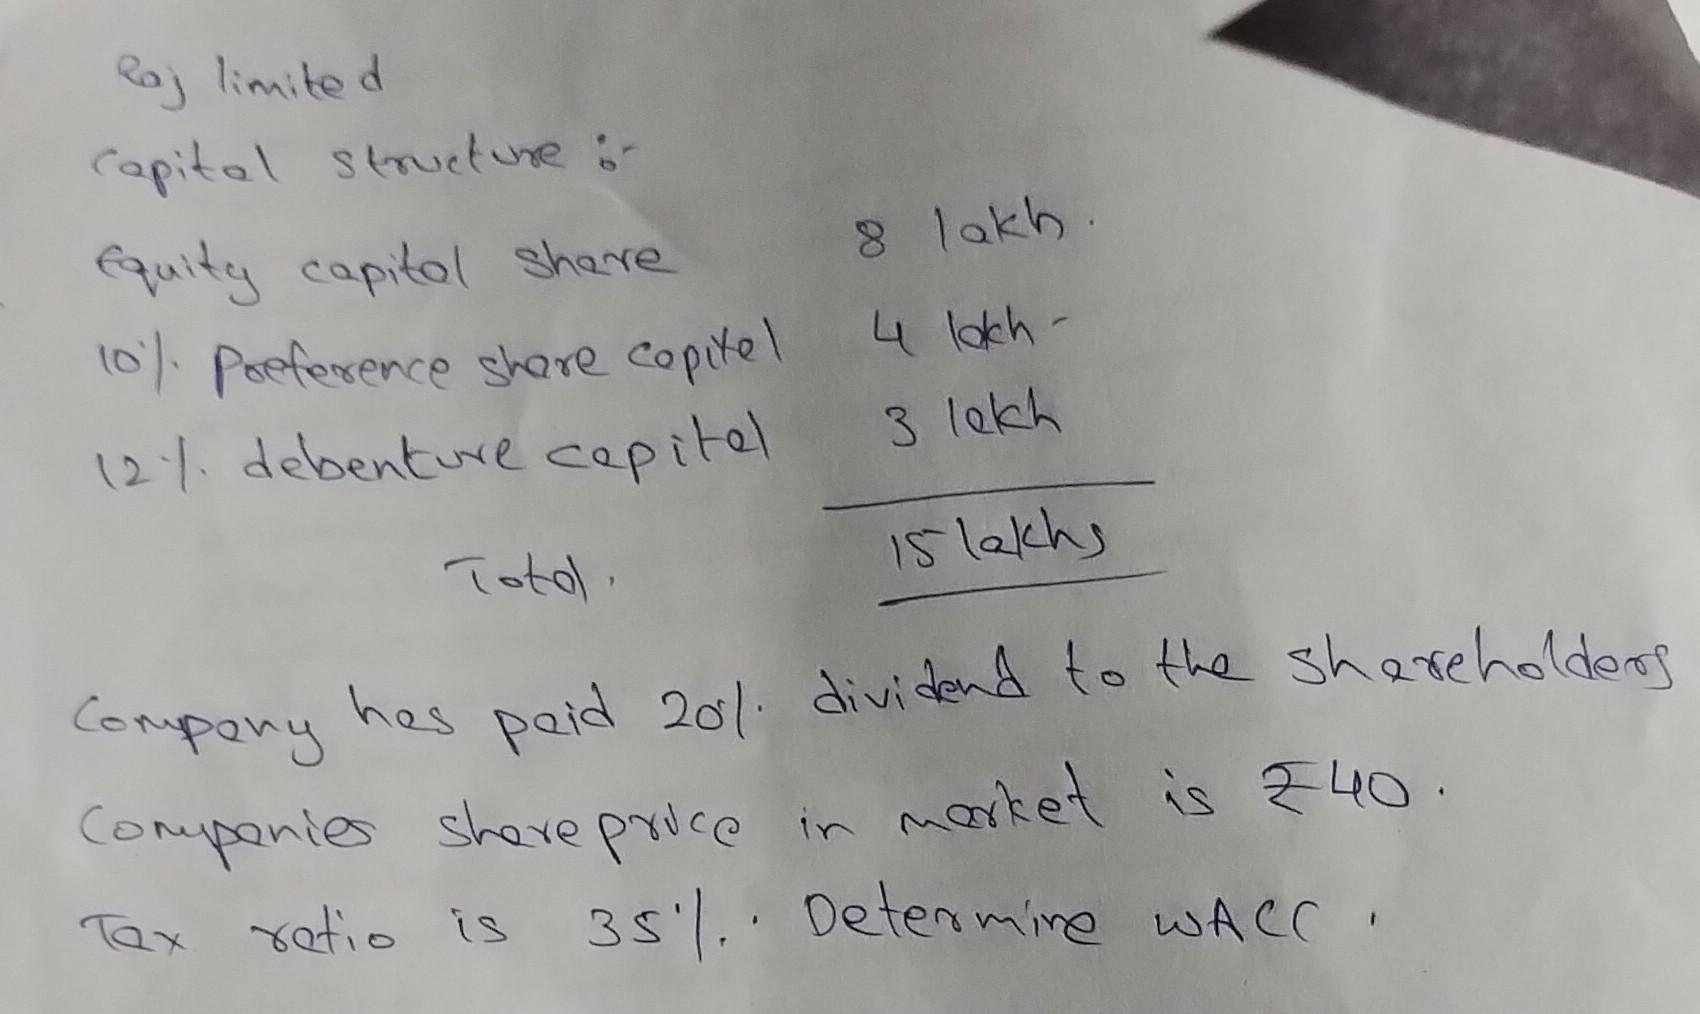 Raj limited
Capital structure :-
Equity capital share 8 lakh.
10% Preference share capital 4 lakh -
12% debenture capital 3 lakh
Total. 15 lakhs
Company has paid 20% dividend to the shareholders
Companies share price in market is ₹40.
Tax ratio is 35%. Determine WACC.